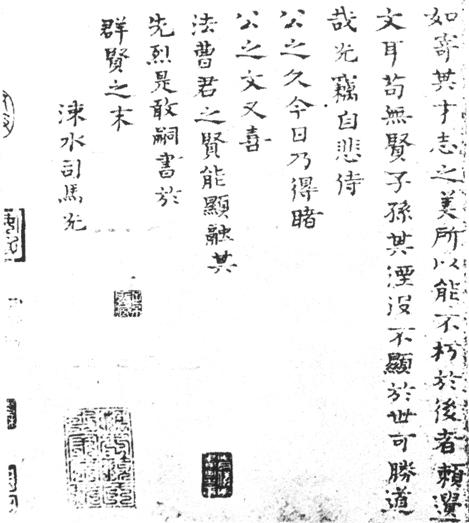 如寄其才志之美所以能不朽於後者賴遺
文耳苟無賢子孫其湮没不顯於世可勝道
哉光竊自悲侍
公之久今日乃得睹
公之文又喜
法曹君之賢能顯融其
先烈是敢嗣書於
群賢之末
涑水司馬光